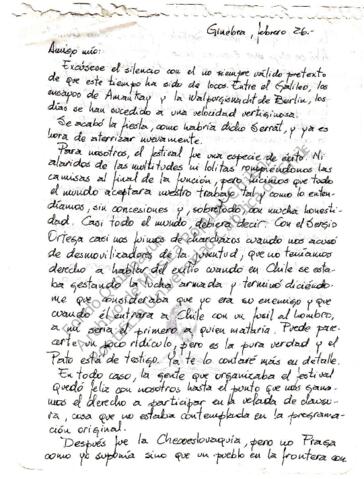 Ginebra, febrero 26.-
Amigo mío:
Excúsese el silencio con el no siempre válido pretexto
de que este tiempo ha sido de locos. Entre el Galileo, los
ensayos de Amankay y la Walpurgisnacht de Berlín, los
días se han sucedido a una velocidad vertiginosa.
Se acabó la fiesta, como habría dicho Serrat, y ya es
hora de aterrizar nuevamente.
Para nosotros, el festival fue una especie de éxito. Ni
alaridos de las multitudes ni lolitas rompiéndonos las
camisas al final de la función, pero hicimos que todo
el mundo aceptara nuestro trabajo tal y como lo enten-
díamos, sin concesiones y, sobretodo, con mucha honesti-
dad. Casi todo el mundo, debiera decir. Con el Sergio
Ortega casi nos fuimos de charchazos cuando nos acusó
de desmovilizadores de la juventud, que no teníamos
derecho a hablar del exilio cuando en Chile se esta-
ba gestando la lucha armada y terminó diciéndo
me que consideraba que yo era su enemigo y que
cuando él entrara a Chile con un fusil al hombro,
a mí sería el primero a quien mataría. Puede pare-
certe un poco ridículo, pero es la pura verdad y el
Pato está de testigo. Ya te lo contaré más en detalle.
En todo caso, la gente que organizaba el festival
quedó feliz con nosotros hasta el punto que nos gana-
mos el derecho a participar en la velada de clausu-
ra, cosa que no estaba contemplada en la programa-
ción original.
Después fue la Checoeslovaquia, pero no Praga
como yo suponía sino que un pueblo en la frontera con